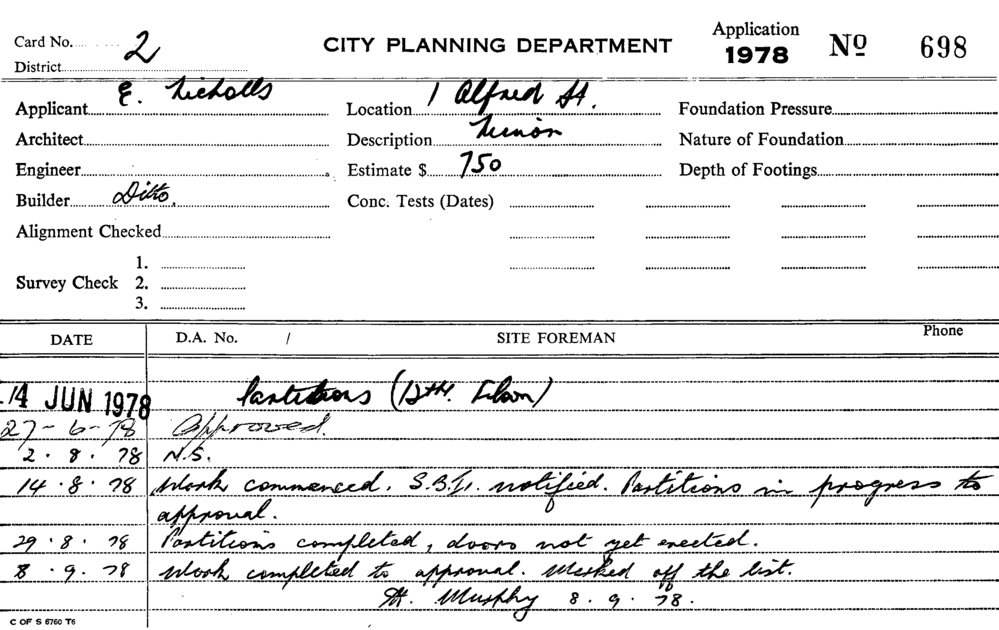 Card No. 2
District
CITY PLANNING DEPARTMENT
Application
1978 Nº 698
Applicant E. Nicholls
Location 1 Alfred St.
Foundation Pressure
Architect
Description Minor
Nature of Foundation
Engineer
Estimate $ 750
Depth of Footings
Builder Ditto.
Conc. Tests (Dates)
Alignment Checked
Survey Check
1.
2.
3.
DATE D.A. No. / SITE FOREMAN Phone
14 JUN 1978 Partitions (12th. Floor)
27-6-78 Approved.
2.8.78 N.S.
14.8.78 Work commenced. notified. Partitions in progress to
approval.
29.8.78 Partitions completed, doors not yet erected.
8.9.78 Work completed to approval. Marked off the list.
Murphy 8.9.78.
C OF S 6760 T6